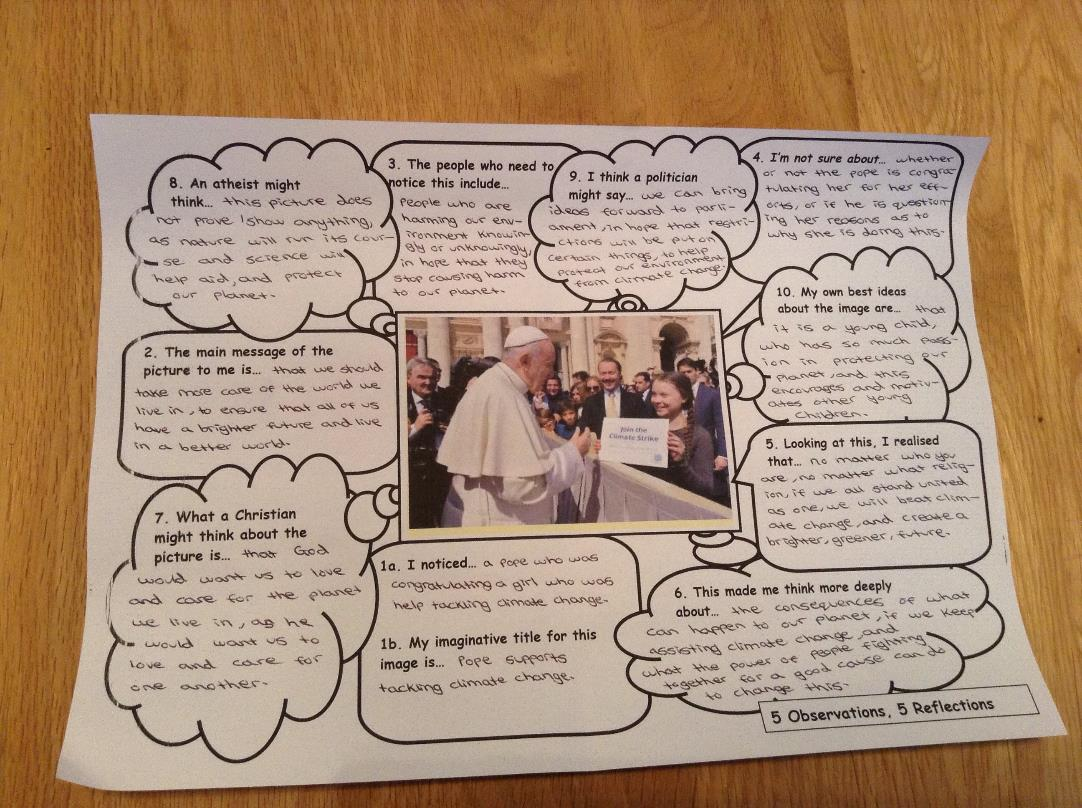 8. An atheist might
think... this picture does
not prove/show anything,
as nature will run its cour-
se and science will
help aid, and protect
our planet.
3. The people who need to
notice this include...
people who are
harming our env-
ironment knowin-
gly or unknowingly,
in hope that they
stop causing harm
to our planet.
9. I think a politician
might say... we can bring
ideas forward to parli-
ament, in hope that restri-
ctions will be put on
certain things, to help
protect our environment
from climate change.
4. I'm not sure about... whether
or not the pope is congra-
tulating her for her eff-
orts, or if he is question-
ing her reasons as to
why she is doing this.
10. My own best ideas
about the image are... that
it is a young child,
who has so much pass-
ion in protecting our
planet, and this
encourages and motiv-
ates other young
children.
2. The main message of the
picture to me is... that we should
take more care of the world we
live in, to ensure that all of us
have a brighter future and live
in a better world.
Join the
Climate Strike
5. Looking at this, I realised
that... no matter who you
are, no matter what relig-
ion, if we all stand united
as one, we will beat clim-
ate change, and create a
brighter, greener, future.
7. What a Christian
might think about the
picture is... that God
would want us to love
and care for the planet
we live in, as he
would want us to
love and care for
one another.
1a. I noticed... a pope who was
congratulating a girl who was
help tackling climate change.
1b. My imaginative title for this
image is... Pope supports
tackling climate change.
6. This made me think more deeply
about... the consequences of what
can happen to our planet, if we keep
assisting climate change, and
what the power of people fighting
together for a good cause can do
to change this.
5 Observations, 5 Reflections